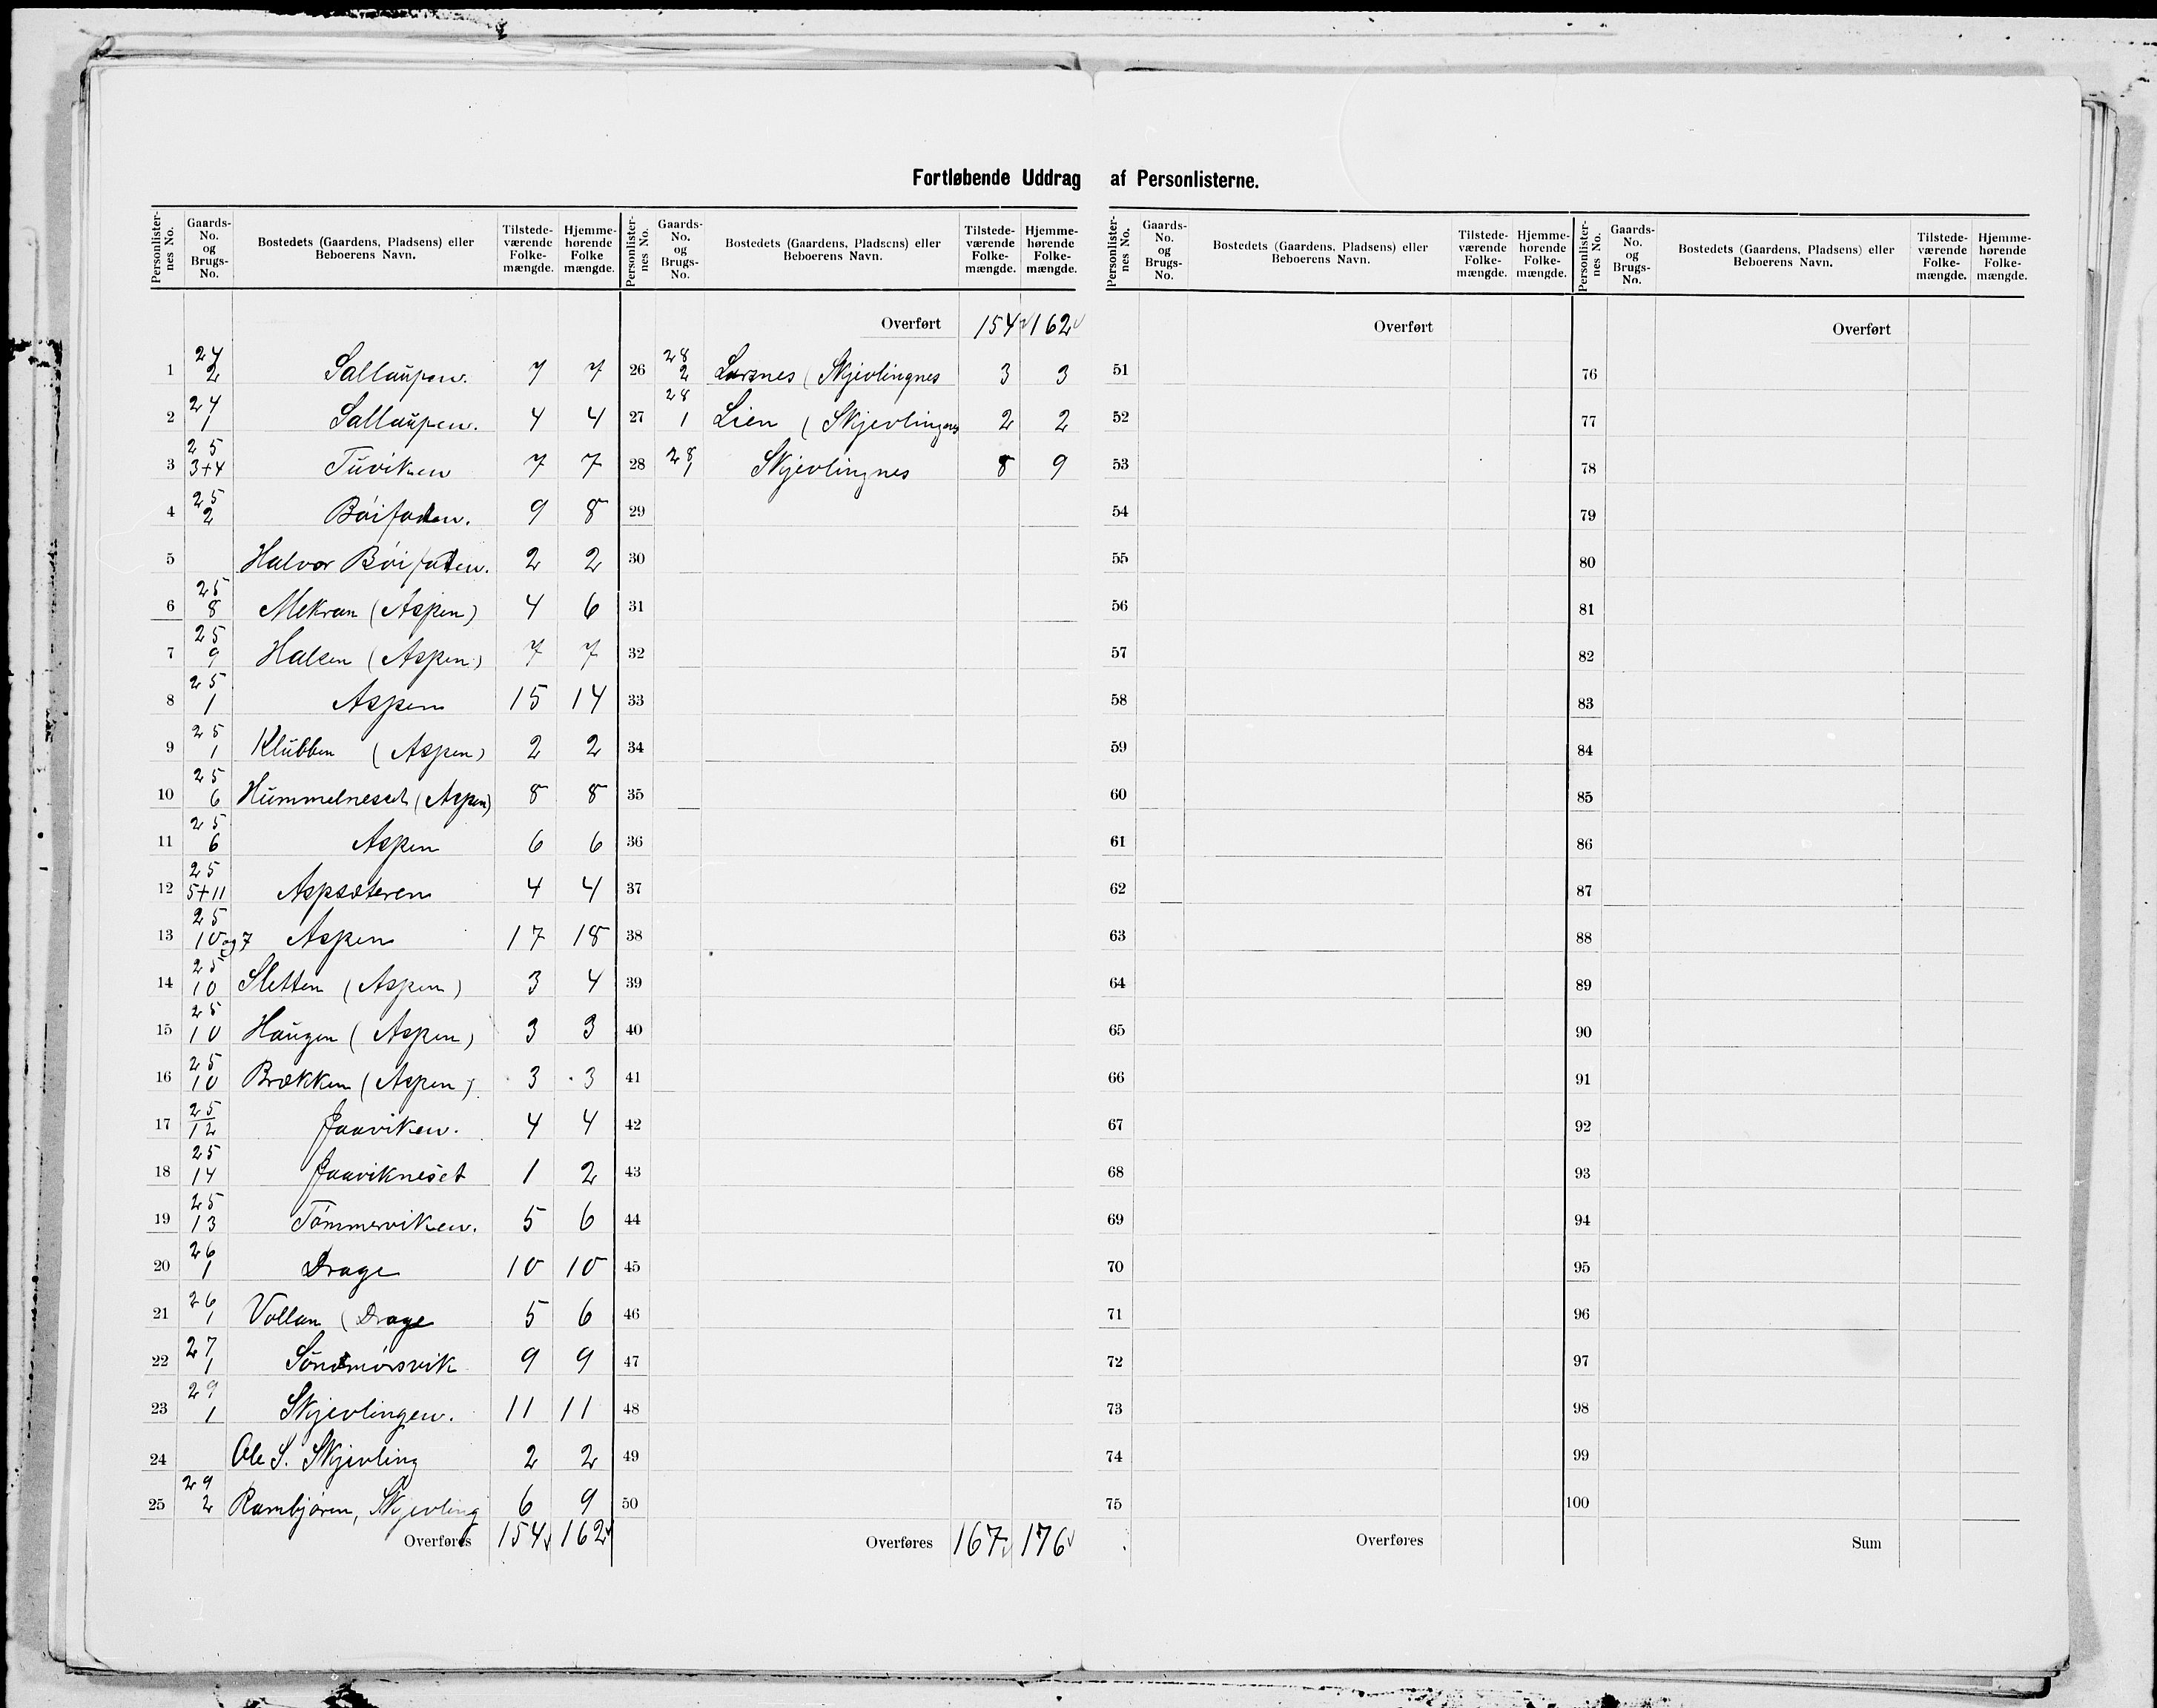 Fortløbende Uddrag af Personlisterne.
Personlister-nes No. | Gaards-No. og Brugs-No. | Bostedets (Gaardens, Pladsens) eller Beboerens Navn. | Tilstede-værende Folke-mængde. | Hjemme-hørende Folke mængde.
1 | 24 2 | Sallaupen. | 7 | 7
2 | 24 1 | Sallaupen. | 4 | 4
3 | 25 3+4 | Tuviken | 7 | 7
4 | 25 2 | Böifoden. | 9 | 8
5 | Halvor Böifoten. | 2 | 2
6 | 25 8 | Mekran (Aspen) | 4 | 6
7 | 25 9 | Halsen (Aspen) | 7 | 7
8 | 25 1 | Aspen | 15 | 14
9 | 25 1 | Klubben (Aspen) | 2 | 2
10 | 25 6 | Hummelneset (Aspen) | 8 | 8
11 | 25 6 | Aspen | 6 | 6
12 | 25 5+11 | Aspsæteren | 4 | 4
13 | 25 10 og 7 | Aspen | 17 | 18
14 | 25 10 | Sletten (Aspen) | 3 | 4
15 | 25 10 | Haugen (Aspen) | 3 | 3
16 | 25 10 | Brækken (Aspen) | 3 | 3
17 | 25 12 | Jaaviken. | 4 | 4
18 | 25 14 | Jaavikneset | 1 | 2
19 | 25 13 | Tömmerviken. | 5 | 6
20 | 26 1 | Drage | 10 | 10
21 | 26 1 | Vollan (Drage | 5 | 6
22 | 27 1 | Söndmörsvik | 9 | 9
23 | 29 1 | Skjevlingen. | 11 | 11
24 | Ole S. Skjevling | 2 | 2
25 | 29 2 | Rambjören, Skjevling | 6 | 9
Overføres | 154 | 162
Personlister-nes No. | Gaards-No. og Brugs-No. | Bostedets (Gaardens, Pladsens) eller Beboerens Navn. | Tilstede-værende Folke-mængde. | Hjemme-hørende Folke-mængde.
Overført | 154 | 162
26 | 28 2 | Larsnes (Skjevlingnes | 3 | 3
27 | 28 1 | Lien (Skjevlingnes | 2 | 2
28 | 28 1 | Skjevlingnes | 8 | 9
29
30
31
32
33
34
35
36
37
38
39
40
41
42
43
44
45
46
47
48
49
50
Overføres | 167 | 176
Personlister-nes No. | Gaards-No. og Brugs-No. | Bostedets (Gaardens, Pladsens) eller Beboerens Navn. | Tilstede-værende Folke-mængde. | Hjemme-hørende Folke-mængde.
Overført
51
52
53
54
55
56
57
58
59
60
61
62
63
64
65
66
67
68
69
70
71
72
73
74
75
Overføres
Personlister-nes No. | Gaards-No. og Brugs-No. | Bostedets (Gaardens, Pladsens) eller Beboerens Navn. | Tilstede-værende Folke-mængde. | Hjemme-hørende Folke-mængde.
Overført
76
77
78
79
80
81
82
83
84
85
86
87
88
89
90
91
92
93
94
95
96
97
98
99
100
Sum